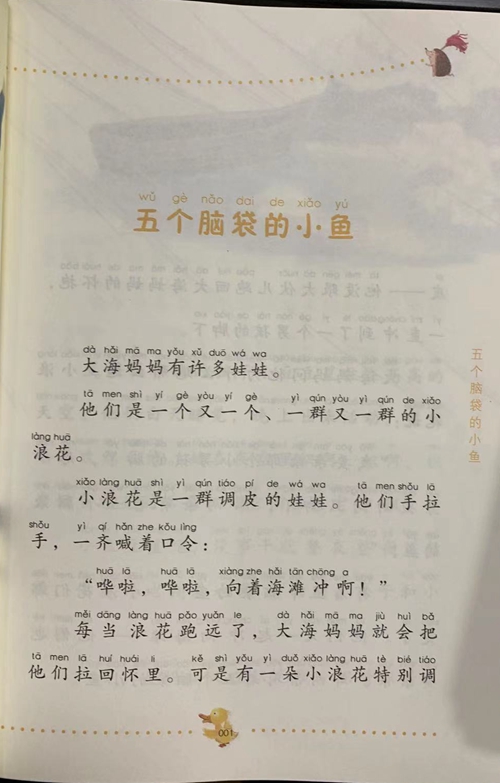 wǔ gè nǎo dai de xiǎo yú
五个脑袋的小鱼
dà hǎi mā ma yǒu xǔ duō wá wa
大海妈妈有许多娃娃。
tā men shì yí gè yòu yí gè yì qún yòu yì qún de xiǎo
他们是一个又一个、一群又一群的小
làng huā
浪花。
xiǎo làng huā shì yì qún tiáo pí de wá wa tā men shǒu lā
小浪花是一群调皮的娃娃。他们手拉
shǒu yì qí hǎn zhe kǒu lìng
手，一齐喊着口令：
huā lā huā lā xiàng zhe hǎi tān chōng a
“哗啦，哗啦，向着海滩冲啊！”
měi dāng làng huā pǎo yuǎn le dà hǎi mā ma jiù huì bǎ
每当浪花跑远了，大海妈妈就会把
tā men lā huí huái li kě shì yǒu yì duǒ xiǎo làng huā tè bié tiáo
他们拉回怀里。可是有一朵小浪花特别调
五个脑袋的小鱼
001